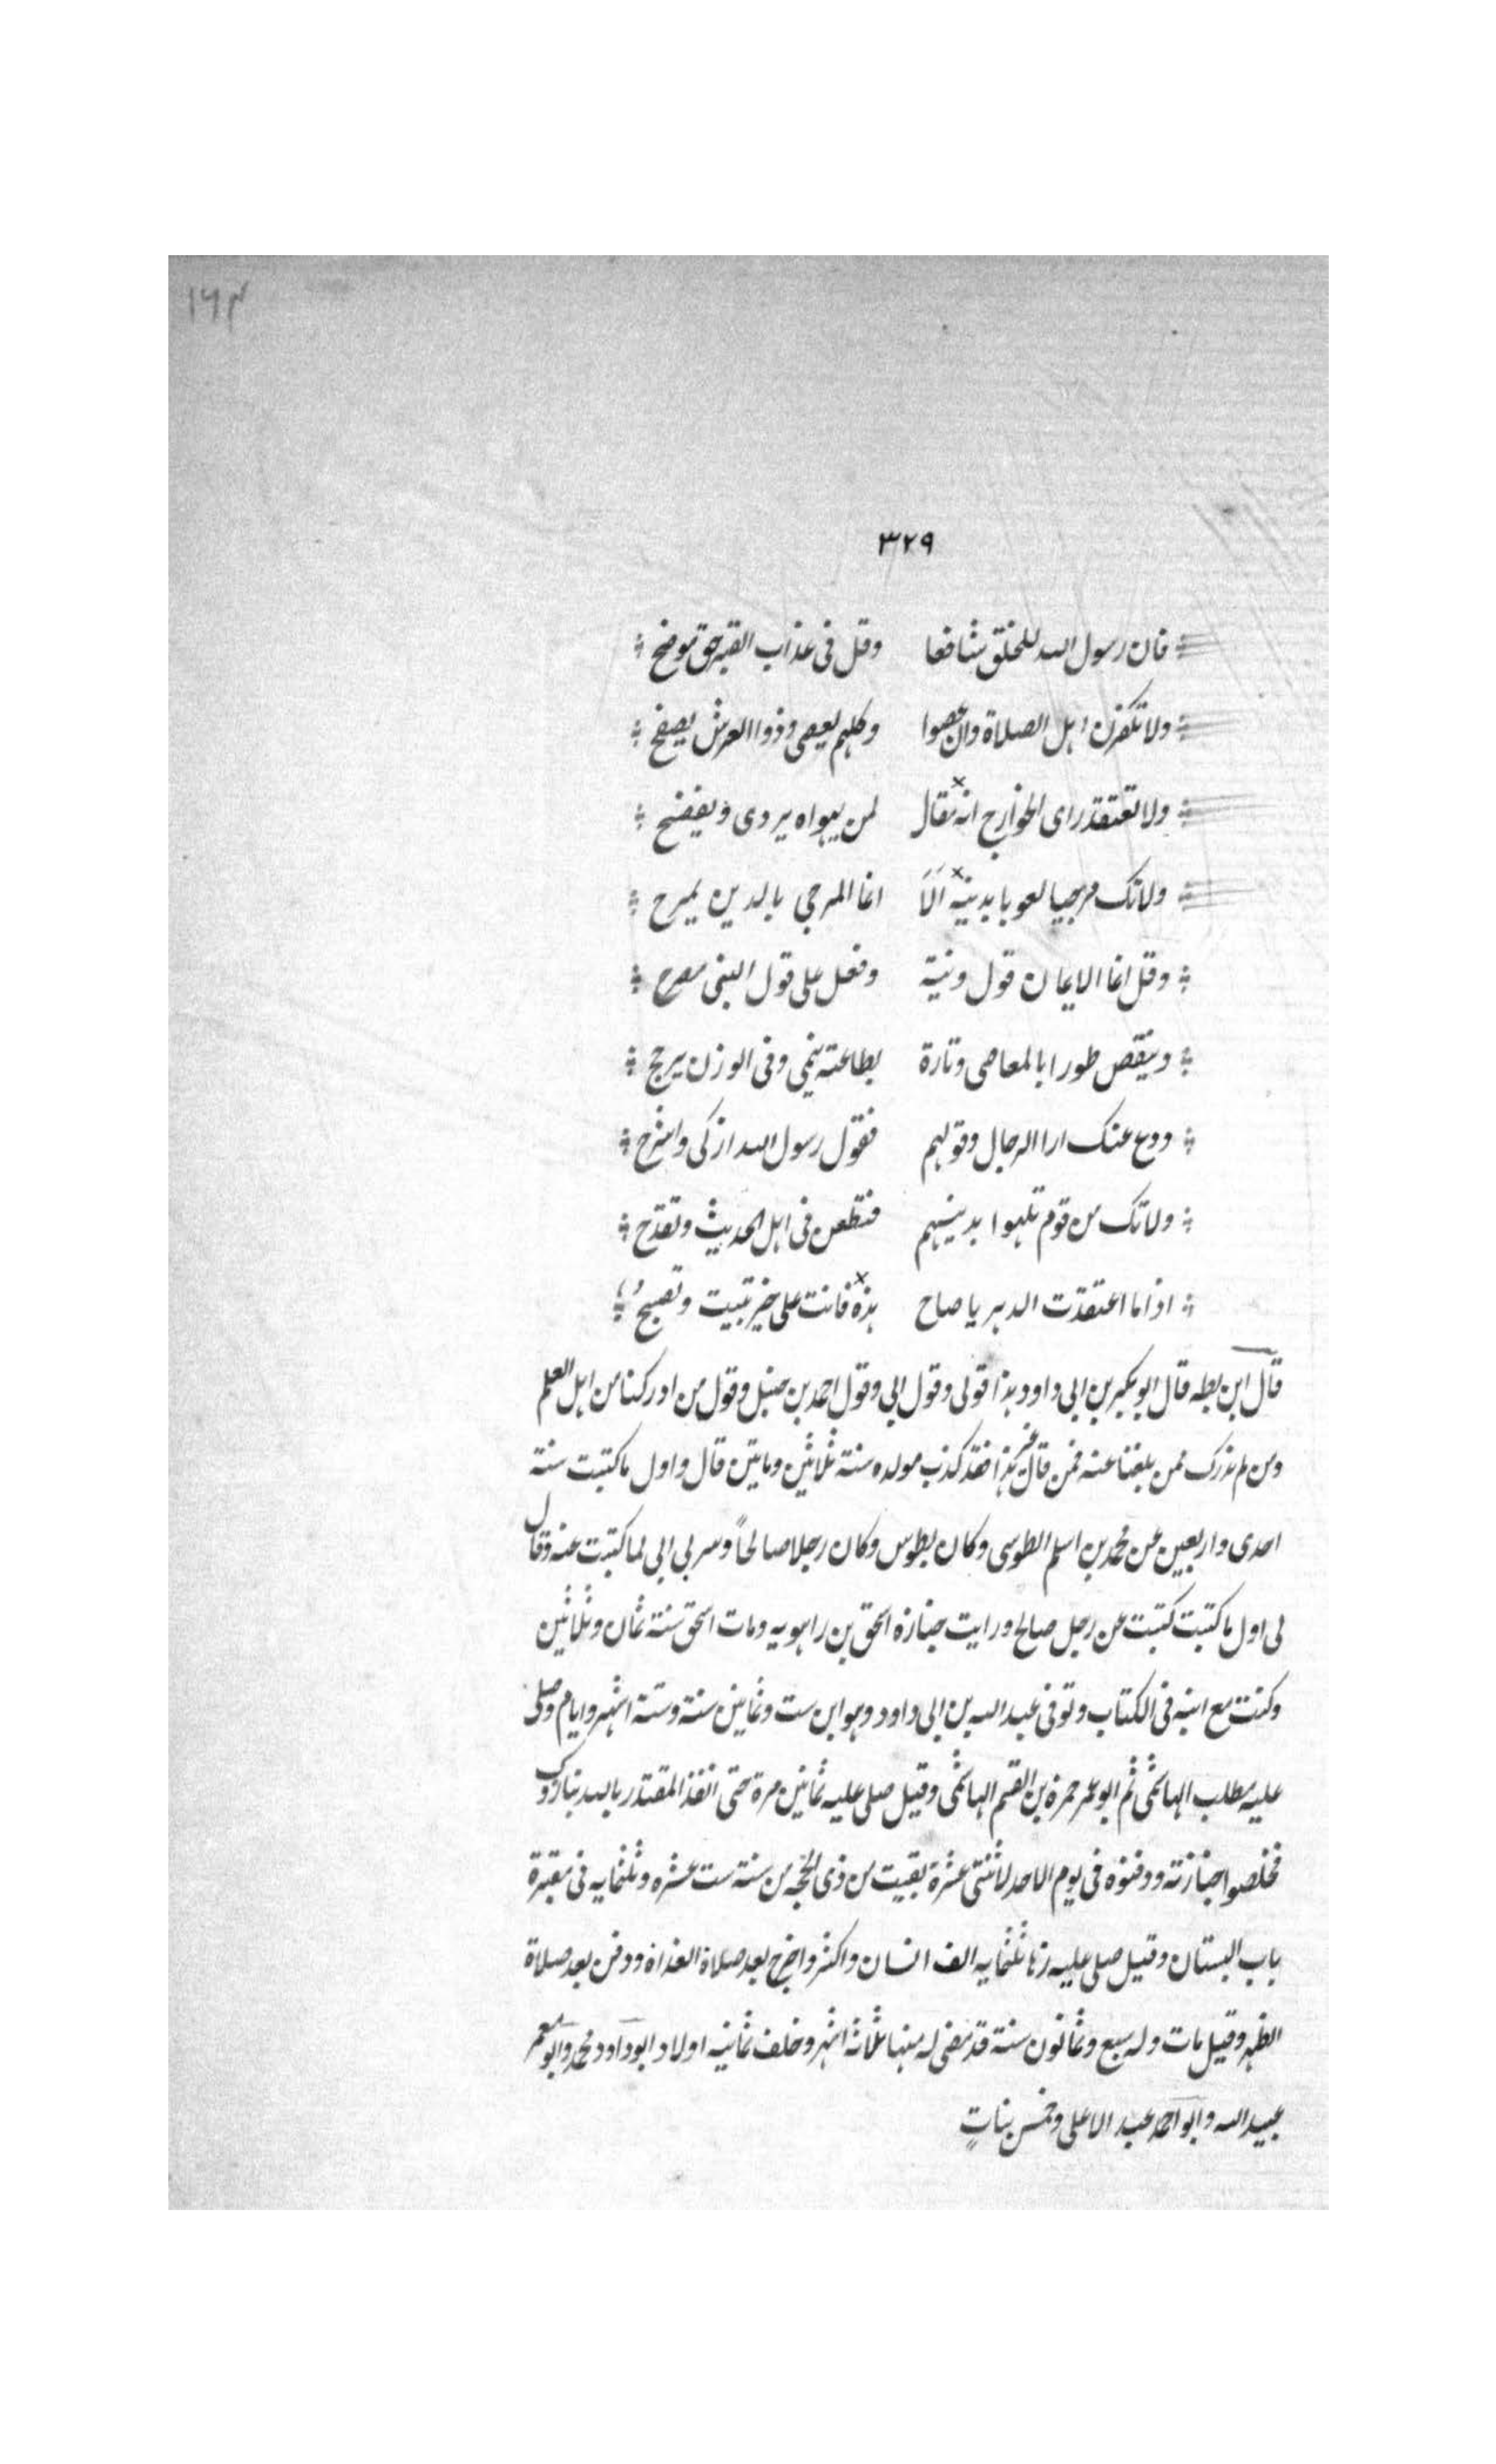 ١٦٣
٣٢٩
فان رسول الله للخلق شافعا وقل فى عذاب القبر حق موضح
ولا تكفرن اهل الصلاة وان عصوا وكلهم يعصى وذوا العرش يصفح
ولا تعتقد راى الخوارج انه مقال لمن يهواه يردى ويفضح
ولا تك مرجيا لعوبا بدينه الا انما المرجى بالدين يمرح
وقل انما الايمان قول ونية وفعل على قول النبى مصرح
وينقص طورا بالمعاصى وتارة بطاعته ينمى وفى الوزن يرجح
ودع عنك ارا الرجال وقولهم فقول رسول الله ازكى واشرح
ولا تك من قوم تلهوا بدينهم فتطعن فى اهل الحديث وتقدح
اذا ما اعتقدت الدهر يا صاح هذه فانت على خير تبيت وتصبح
قال ابن بطه قال ابو بكر بن ابى داود هذا قولى وقول ابى وقول احمد بن حنبل وقول من ادركنا من اهل العلم
ومن لم ندرك ممن بلغنا عنه فمن قال غير هذا فقد كذب مولده سنة ثلاثين وماتين قال واول ما كتبت سنة
احدى واربعين عن محمد بن اسلم الطوسى وكان بطوس وكان رجلا صالحاً وسر بى ابى لما كتبت عنه وقال
لى اول ما كتبت كتبت عن رجل صالح ورايت جنازة اسحق بن راهويه ومات اسحق سنة ثمان وثلاثين
وكنت مع ابنه فى الكتاب وتوفى عبد الله بن ابى داود وهو ابن ست وثمانين سنة وستة اشهر وايام وصلى
عليه مطلب الهاشمى ثم ابو عمر حمزة بن القسم الهاشمى وقيل صلى عليه ثمانين مرة حتى انفذ المقتدر بالله بنازوك
فخلصوا جنازته ودفنوه فى يوم الاحد لاثنتى عشرة بقيت من ذى الحجه من سنة ست عشره وثلثمايه فى مقبرة
باب البستان وقيل صلى عليه زها ثلثمايه الف انسان واكثر واخرج بعد صلاة الغداة ودفن بعد صلاة
الظهر وقيل مات وله سبع وثمانون سنة قد مضى له منها ثلاثة اشهر وخلف ثمانيه اولاد ابو داود محمد وابو معمر
عبيد الله وابو احمد عبد الاعلى وخمس بناتٍ